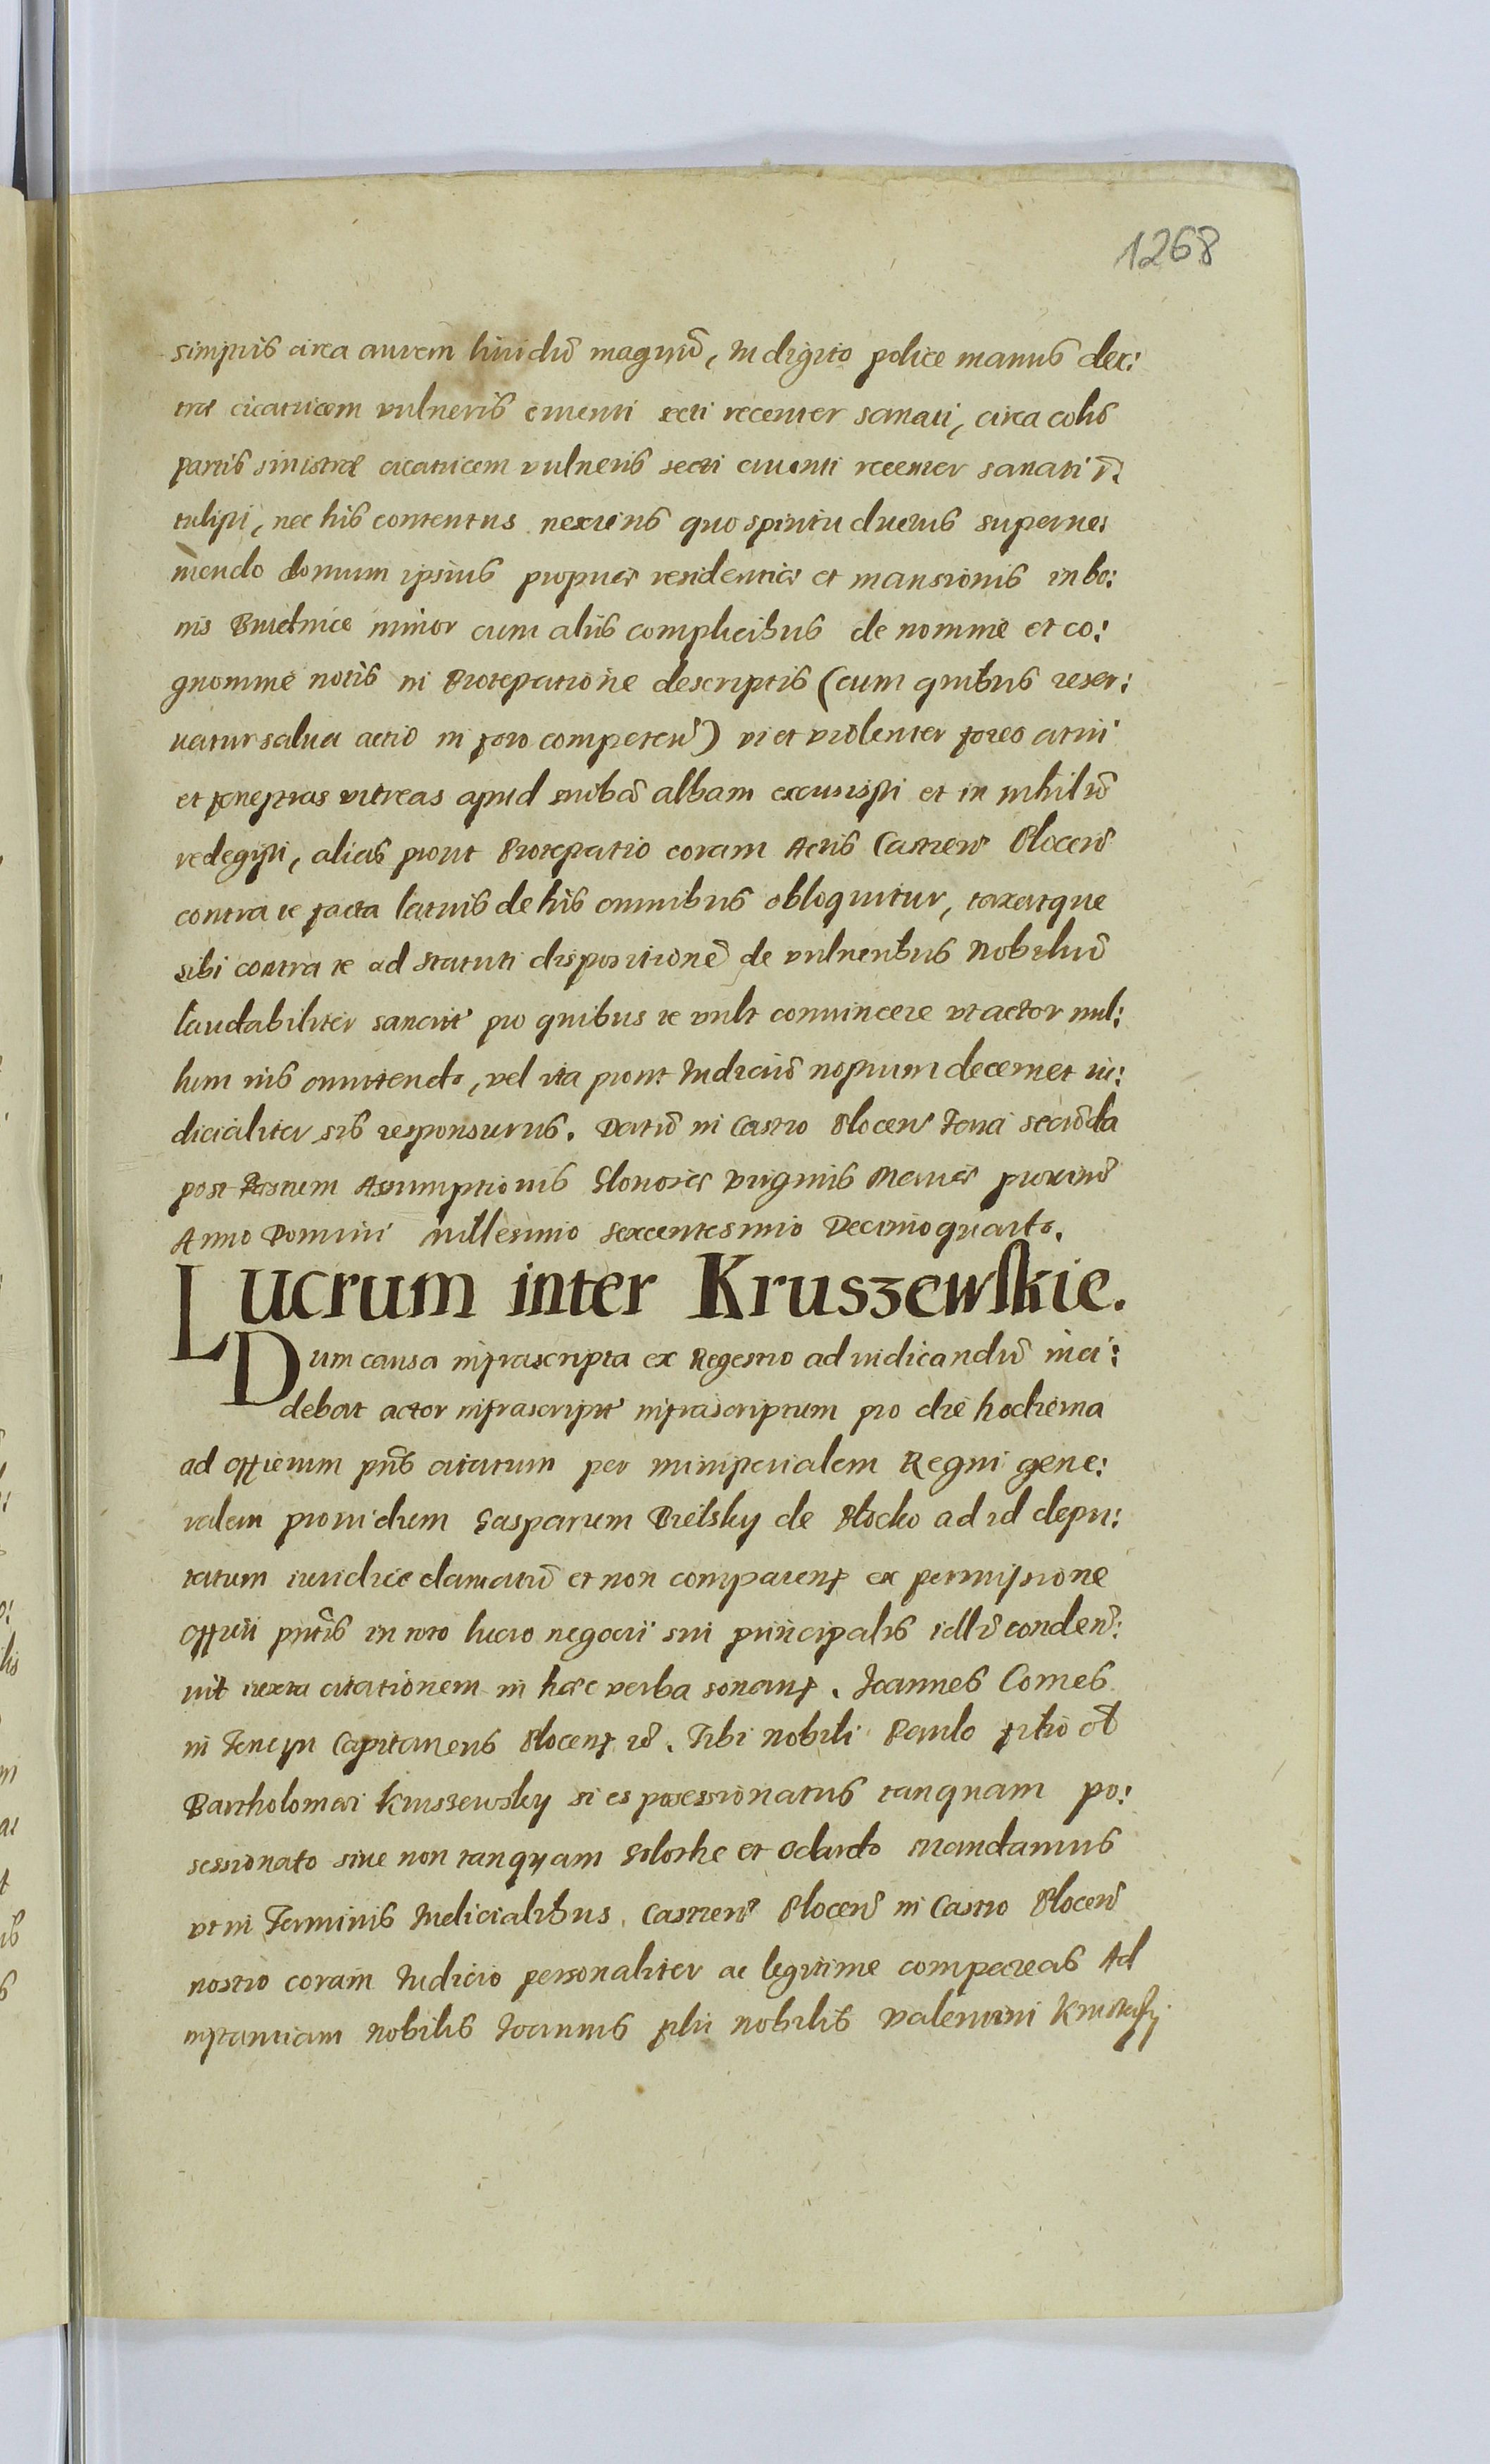 1268
simpus circa aurem liuidū magnū, In digito police manus dex:
træ cicatricem vulneris cruenti secti recenter sanati, circa colis
partis sinistræ cicatricem vulneris secti cruenti recenter sanati
tulisti, nec his contentus nescitus quo spiritu ductus superue:
niendo domum ipsius propriæ residentiæ et mansionis in bo:
nis minor cum aliis complicibus de nomine et co:
gnomine notis in Protestatione descriptis (cum quibus reser:
uatur salua actio in foro competen̄) vi et violenter fores
et fenestras vitreas apud albam excussisti et in nihilū
redegisti, alias prout Protestatio coram Actis Castren̄ Plocen̄
contra te facta latius de his omnibus obloquitur, taxatque
sibi contra te ad statuti dispositionē de vulneribus Nobiliū
laudabiliter sancit pro quibus te vult conuincere vt actor nul:
lum ius omittendo, vel ita prout Iudiciū nostrum decernet iu:
dicialiter sis responsurus. Datū in Castro Plocen̄ feria secūda
post festum Assumptionis Gloriosæ Virginis Mariæ proximē
Anno Domini millesimo sexcentesimo Decimoquarto.
Lucrum inter Kruszewskie.
Dum causa infrascripta ex Regestro ad iudicandū inci:
debat actor infrascript infrascriptum pro die hodierna
ad officium pn̄s citatum per ministerialem Regni gene:
ralem prouidum Gasparum Bielsky de Plocko ad id depu:
tatum iuridice clamatū et non comparen̄ ex permissione
officii pn̄tis in toto lucro negocii sui principalis illū conden̄:
uit iuxta citationem in hæc verba sonan̄. Joannes Comes
in Tenczin Capitaneus Plocen̄ . Tibi Nobili Paulo filio ol̄
Bartholomæi Kruszewsky si es possessionatus tanquam po:
sessionato siue non tanquam Golothe et Odardo mandamus
vt in Terminis Iudicialibus Castren̄ Plocen̄ in Castro Plocen̄
nostro coram Iudicio personaliter ac legitime compareas Ad
instantiam Nobilis Joannis filii nobilis Valentini